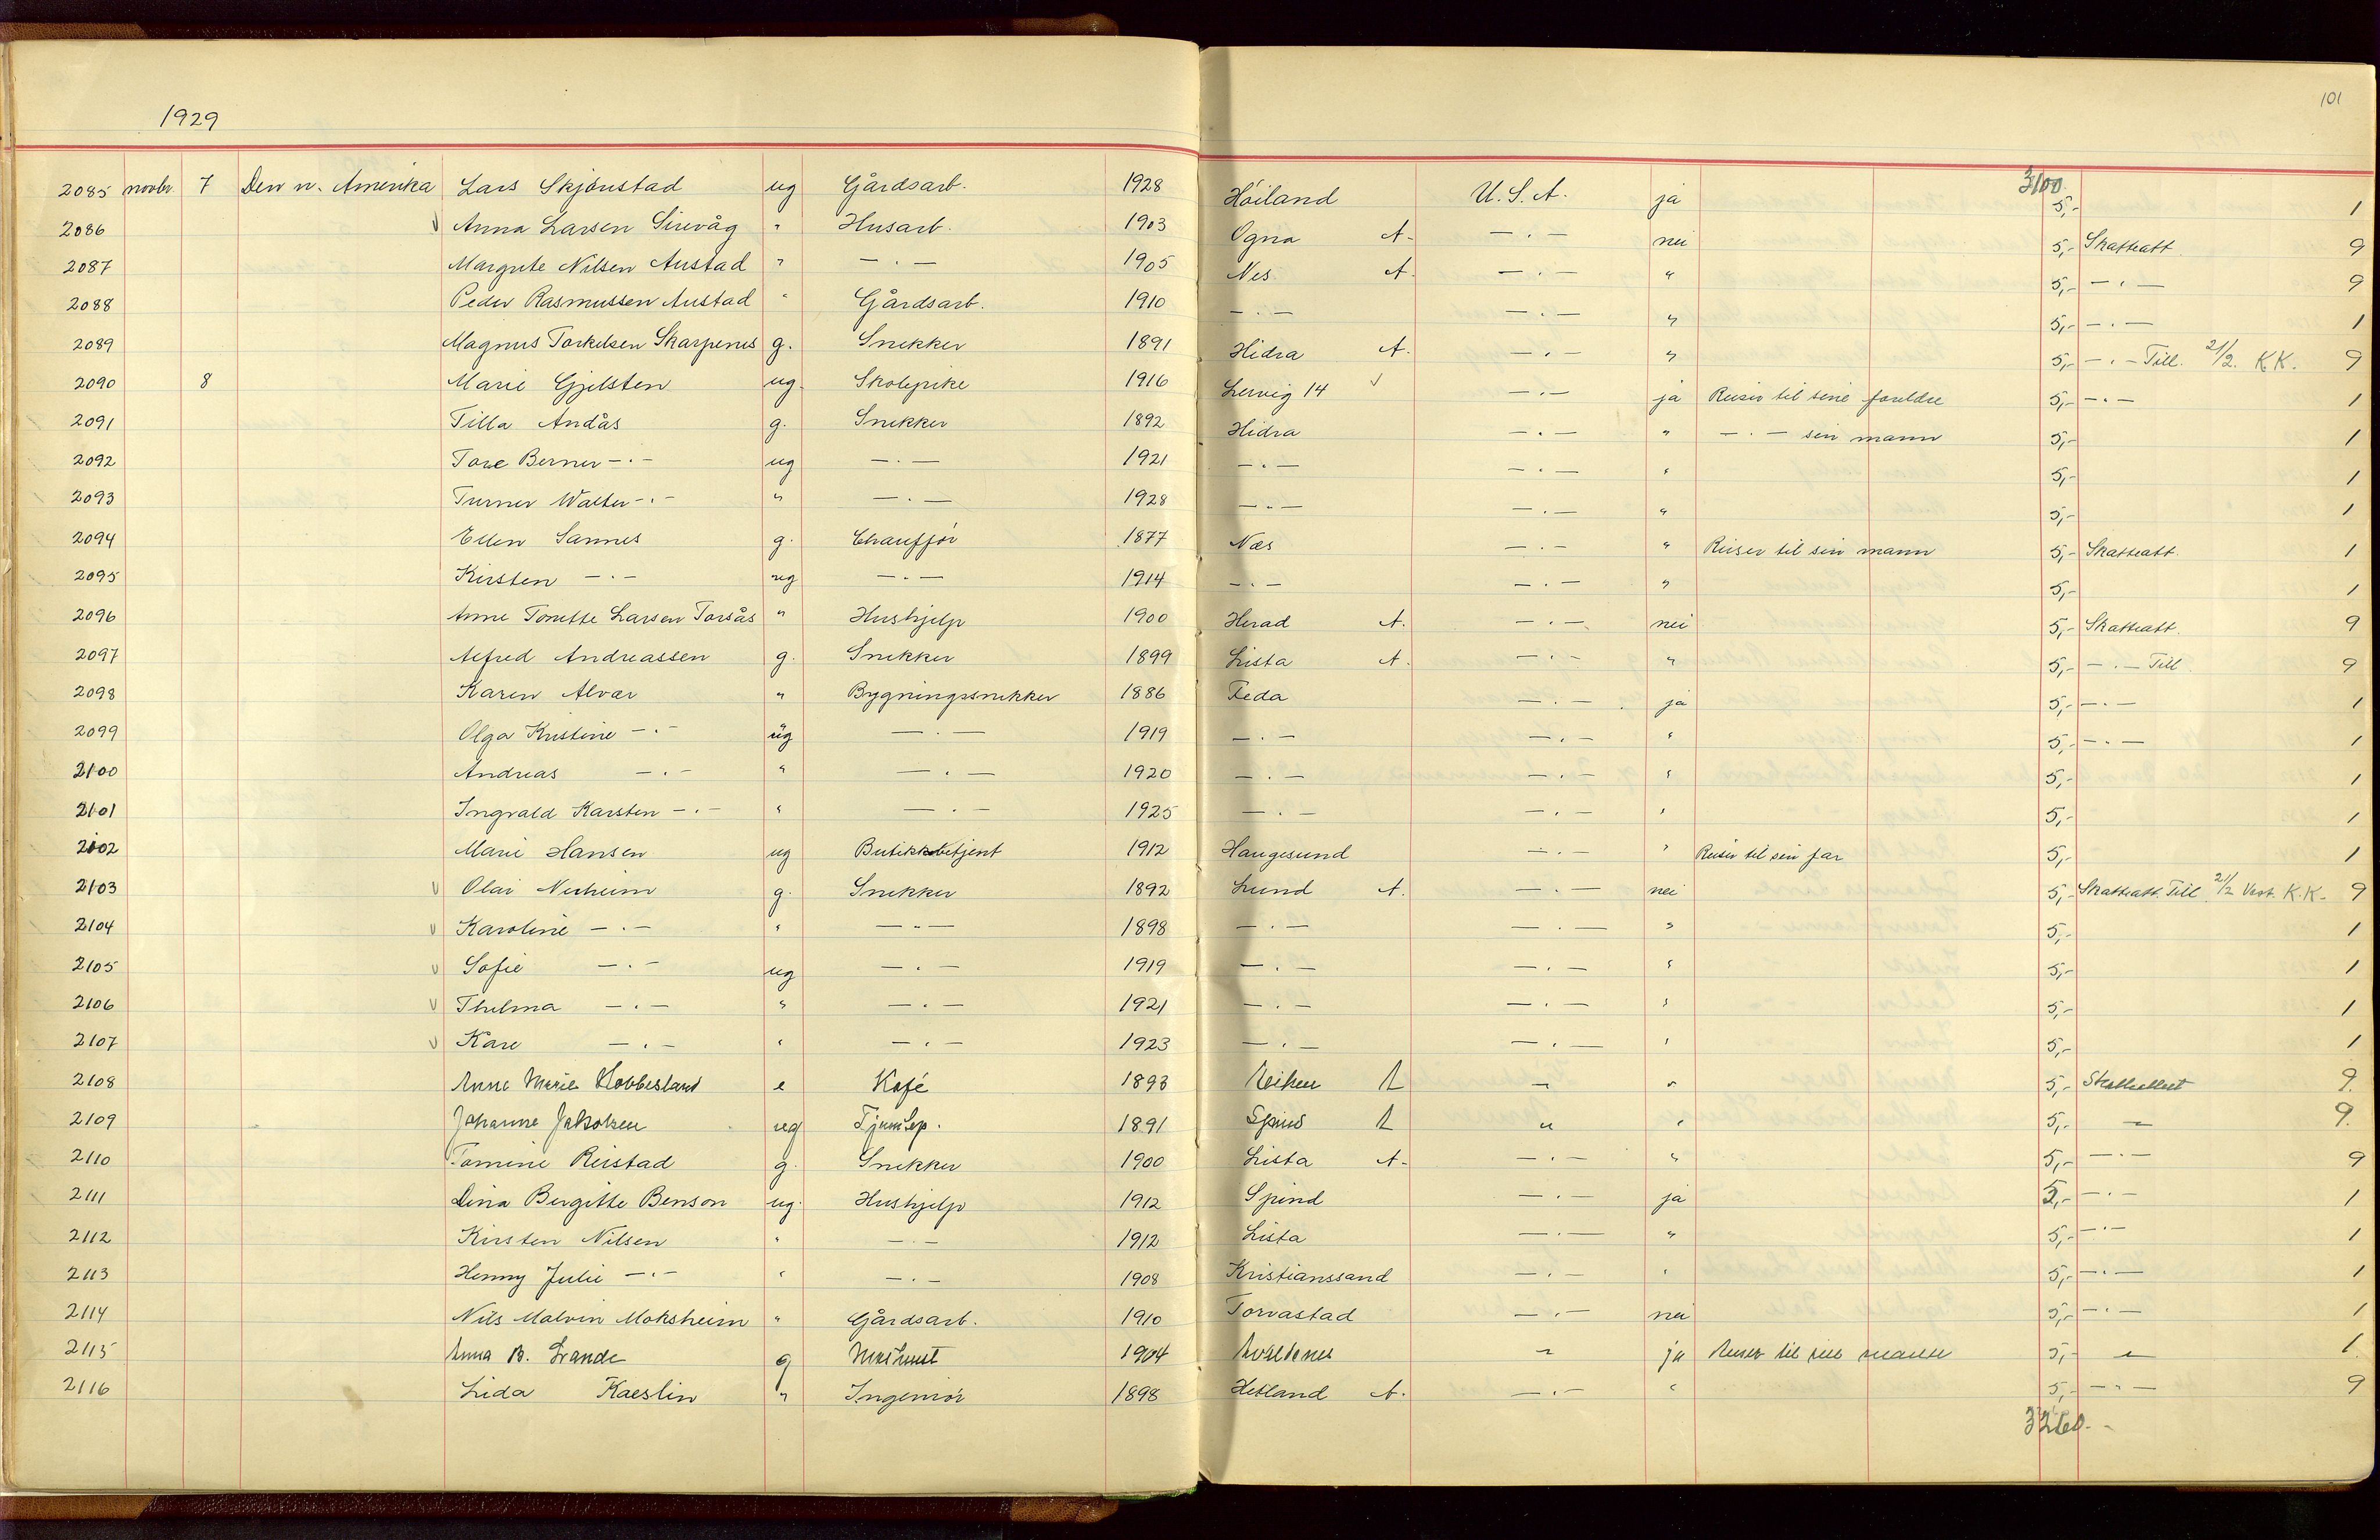 101
1929
3100.
2085 novbr 7 Den n. Amerika Lars Skjönstad ug Gårdsarb. 1928 Höiland U.S.A. ja 5,- 1
2086 v Anna Larsen Sirevåg " Husarb. 1903 Ogna A. — . — nei 5,- Skatteatt. 9
2087 Margrete Nilsen Austad " — . — 1905 Nes A. — . — " 5,- — . — 9
2088 Peder Rasmussen Austad " Gårdsarb. 1910 — . — — . — " 5,- — . — 1
2089 Magnus Torkelsen Skarpenes g. Snekker 1891 Hidra A. — . — " 5,- — . — Till. 21/2. KK. 9
2090 8 Marie Gjelsten ug. Skolepike 1916 Lervig 14 v — . — ja Reiser til sine foreldre 5,- — . — 1
2091 Tilla Andås g. Snekker 1892 Hidra — . — " — . — sin mann 5,- 1
2092 Tore Berner — . — ug — . — 1921 — . — — . — " 5,- 1
2093 Turner Walter — . — " — . — 1928 — . — — . — " 5,- 1
2094 Ellen Sannes g. Chauffjör 1877 Næs — . — " Reiser til sin mann 5,- Skatteatt. 1
2095 Kirsten — . — ug — . — 1914 — . — — . — " 5,- 1
2096 Anne Tonette Larsen Torsås " Hushjelp 1900 Herad A. — . — nei 5,- Skatteatt. 9
2097 Alfred Andreassen g. Snekker 1899 Lista A. — . — " 5,- — . — Till. 9
2098 Karen Alvær " Bygningssnekker 1886 Feda — . — ja 5,- — . — 1
2099 Olga Kristine — . — ug — . — 1919 — . — — . — " 5,- — . — 1
2100 Andreas — . — " — . — 1920 — . — — . — " 5,- 1
2101 Ingvald Karsten — . — " — . — 1925 — . — — . — " 5,- 1
2102 Marie Hansen ug Butikkbetjent 1912 Haugesund — . — " Reiser til sin far 5,- 1
2103 v Olai Nuheim g. Snekker 1892 Lund A. — . — nei 5,- Skatteatt. Till. 21/2 Vest. K.K. 9
2104 v Karoline — . — " — . — 1898 — . — — . — " 5,- 1
2105 v Sofie — . — ug — . — 1919 — . — — . — " 5,- 1
2106 v Thelma — . — " — . — 1921 — . — — . — " 5,- 1
2107 v Kåre — . — " — . — 1923 — . — — . — " 5,- 1
2108 Anne Marie Kobbesland e Kafé 1893 A — " 5,- Skatteattest 9.
2109 Johanne Jakobsen ug 1891 A " " 5,- — 9.
2110 Tomine Reistad g. Snekker 1900 Lista A. — . — " 5,- — . — 9
2111 Dina Bergitte Benson ug. Hushjelp 1912 Spind — . — ja 5,- — . — 1
2112 Kirsten Nilsen " — . — 1912 Lista — . — " 5,- — . — 1
2113 Henny Julie — . — " — . — 1908 Kristianssand — . — " 5,- — . — 1
2114 Nils Malvin Moksheim " Gårdsarb. 1910 Torvastad — . — nei 5,- — . — 1
2115 Anna B. Grande g Maskinist 1904 Avaldsnes — ja Reiser til sin mann 5,- — 1.
2116 Lida Kaeslin " Ingeniör 1898 Hetland A. — . — " 5,- — . — 9
3260.-